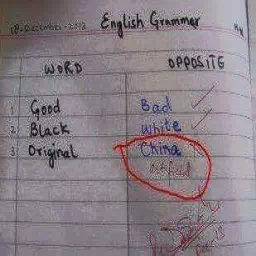 18-December-2012 English Grammar HW
WORD OPPOSITE
1 Good Bad
2 Black White
3 Original China